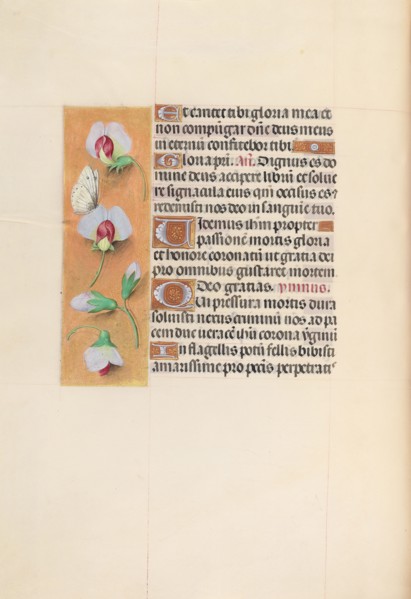 Et cantet tibi gloria mea et
non compũgar dñe deus meus
in eternũ confitebor tibi.
Gloria pr̃i. Añ. Dignus es do
mine deus accipere librũ et solue
re signacula eius qm̃ occisus es ⁊
redemisti nos deo in sanguĩe tuo.
Uidemus ihm̃ propter
passionẽ mortis gloria
et honore coronatũ ut gratia dei
pro omnibus gustaret mortem
Deo gratias. ymnus.
Qui pressura mortis dura
soluisti nexus criminũ nos ad pa
cem duc uera cẽ ihũ corona ṽginũ
In flagellis potũ fellis bibisti
amarissime pro pccĩs perpetratis